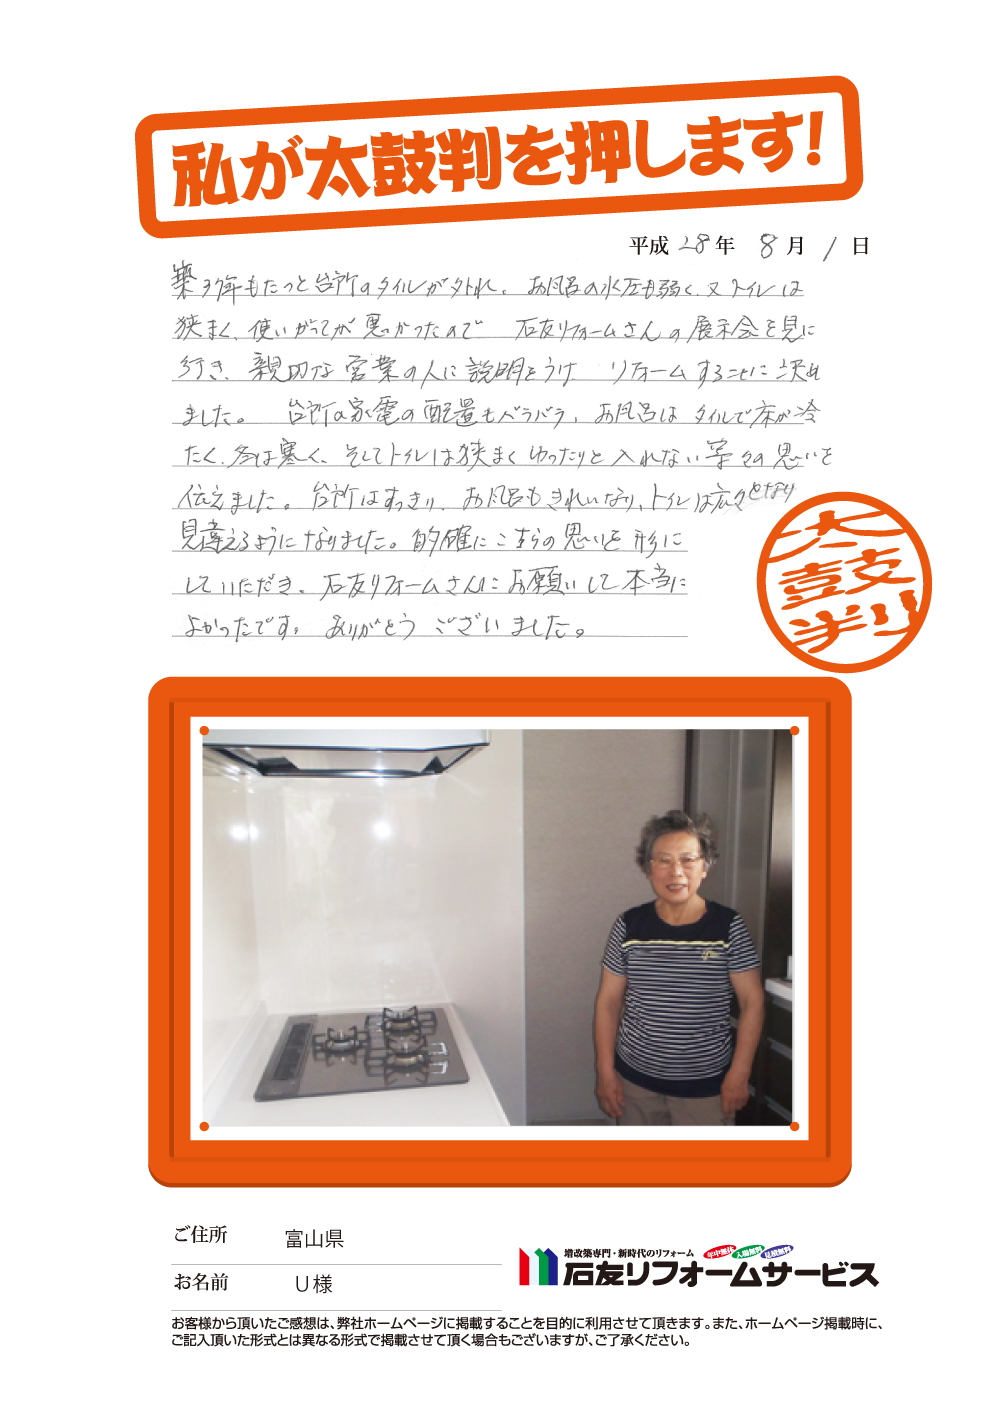 私が太鼓判を押します!
平成 28 年 8 月 1 日
築37年もたつと台所のタイルが外れ、お風呂の水圧も弱く、又トイレは
狭まく、使いがってが悪かったので 石友リフォームさんの展示会を見に
行き、親切な営業の人に説明をうけ リフォームすることに決れ
ました。 台所の家電の配置もバラバラ、お風呂はタイルで床が冷
たく、冬は寒く、そしてトイレは狭まくゆったりと入れない等々の思いを
伝えました。台所はすっきり、お風呂もきれいなり、トイレは広々となり
見違えるようになりました。的確にこちらの思いを形に
していただき、石友リフォームさんにお願いして本当に
よかったです。ありがとうございました。
太鼓判
ご住所 富山県
お名前 U様
増改築専門・新時代のリフォーム 年中無休 入場無料 見積無料
石友リフォームサービス
お客様から頂いたご感想は、弊社ホームページに掲載することを目的に利用させて頂きます。また、ホームページ掲載時に、
ご記入頂いた形式とは異なる形式で掲載させて頂く場合もございますが、ご了承ください。